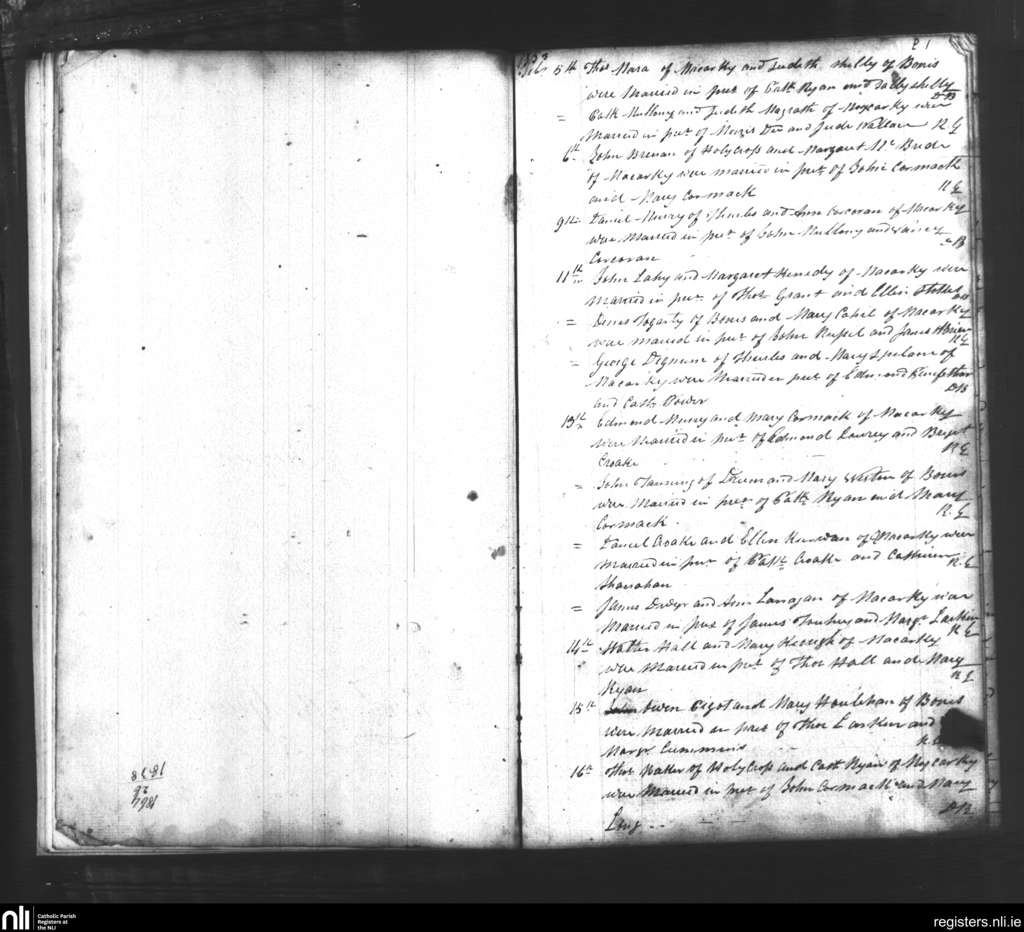 21
5th Thos Mara of Nacarky and Judith Shelly of Boris
were Married in pres of Patk Ryan and Sally Shelly
DB
= Patk Mullony and Judith Magrath of Moycarky were
Married in pres of and Jude Wallace R G
6th John Brenan of HolyCross and Margaret McBride
of Nacarky were married in pres of John Cormack
and Mary Cormack R G
9th Daniel Murry of Thurles and Ann Corcoran of Nacarky
were Married in pres of John Mullony and
Corcoran
11th John Lahy and Margaret Kenedy of Nacarky were
Married in pres of Thos Grant and Ellen
= Denis Fogarty of Boris and Mary Cahel of Nacarky
were married in pres of John Russel and James
R G
= George Dignum of Thurles and Mary of
Nacarky were Married in pres of Edmond
and Cath Power DB
13th Edmond Murry and Mary Cormack of Nacarky
were Married in pres of Edmond and
Croake R G
= John Fanning of Drum and Mary of Boris
were Married in pres of Patk Ryan and Mary
Cormack R. G
= Daniel Croake and Ellen Kerwan of Nacarky were
Married in pres of Patk Croake and
Shanahan R. G
= James Dwyer and Ann Lanagan of Nacarky were
Married in pres of James and Margt Larkin
R G
14th Walter Hall and Mary Keough of Nacarky
were Married in pres of Thos Hall and Mary
Ryan R G
15th John Owen Pigot and Mary Houlehan of Boris
were Married in pres of Thos Larkin and
Margt Cummins R
16th Thos of HolyCross and Cath Ryan of Moycarky
were Married in pres of John Cormack and Mary
Long DB
1838
26
1864
nli
Catholic Parish
Registers at
the NLI
registers.nli.ie